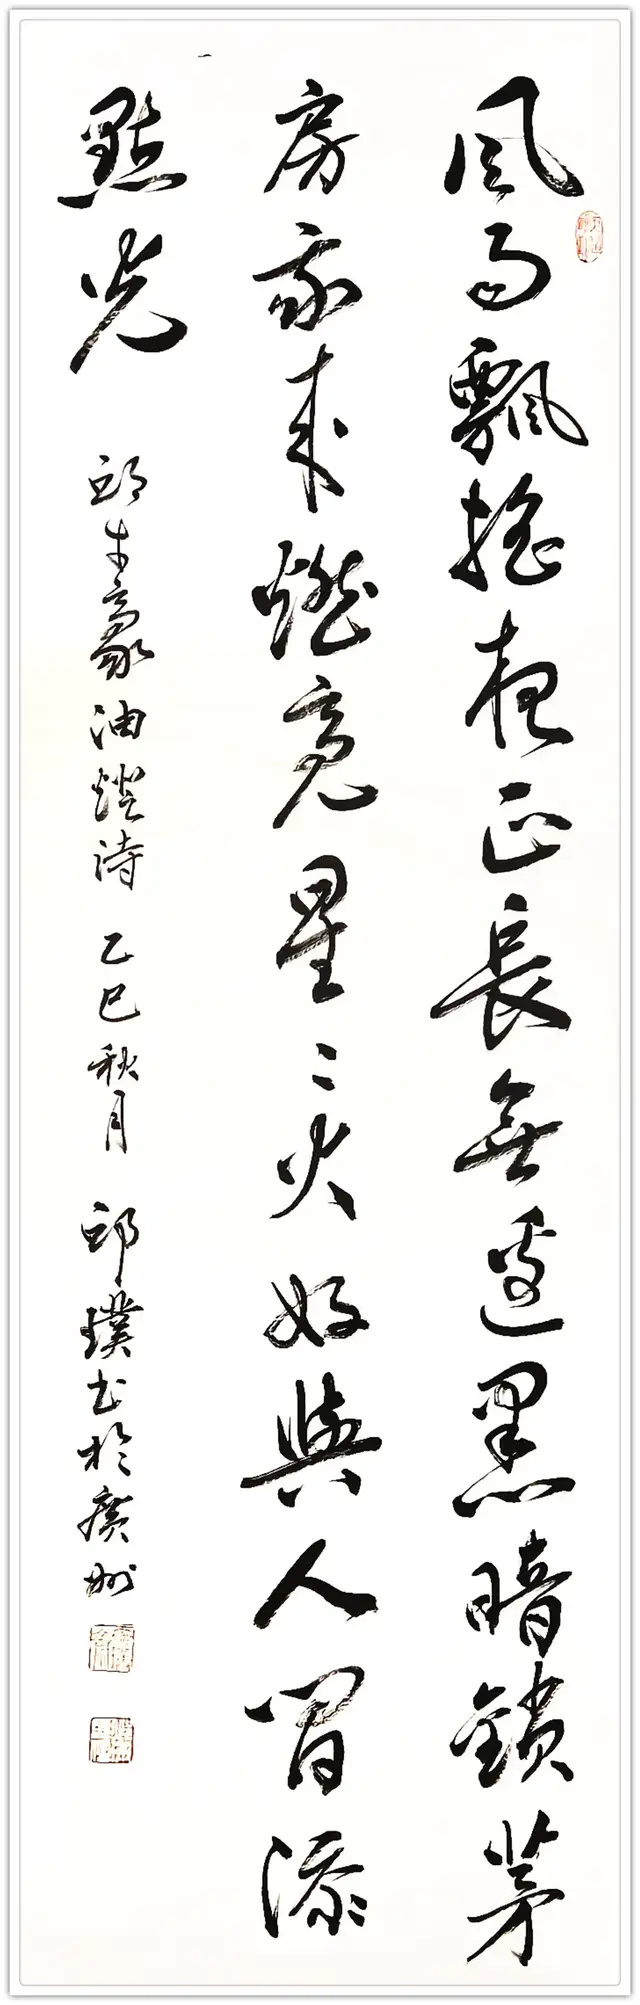 風雨飄搖夜正長無邊黑暗鎖茅
房我來燃亮星〻火好與人間添
點光
邱才豪油燈詩 乙巳秋月 邱璞書於廣州